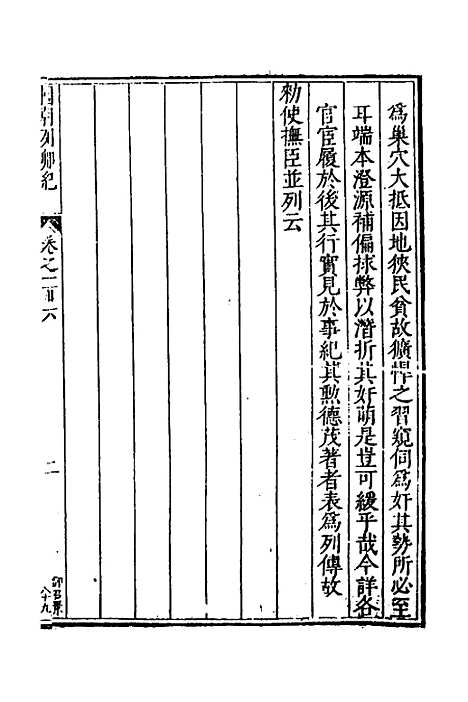 爲巢穴大抵因地狹民貧故獷悍之習窺伺爲奸其勢所必至
耳端本澄源補偏捄弊以潛折其奸萌是豈可緩乎哉今詳各
官宦履於後其行實見於事紀其勲德茂著者表爲列傳故
勑使撫臣並列云
國朝列卿紀
卷之一百六
二